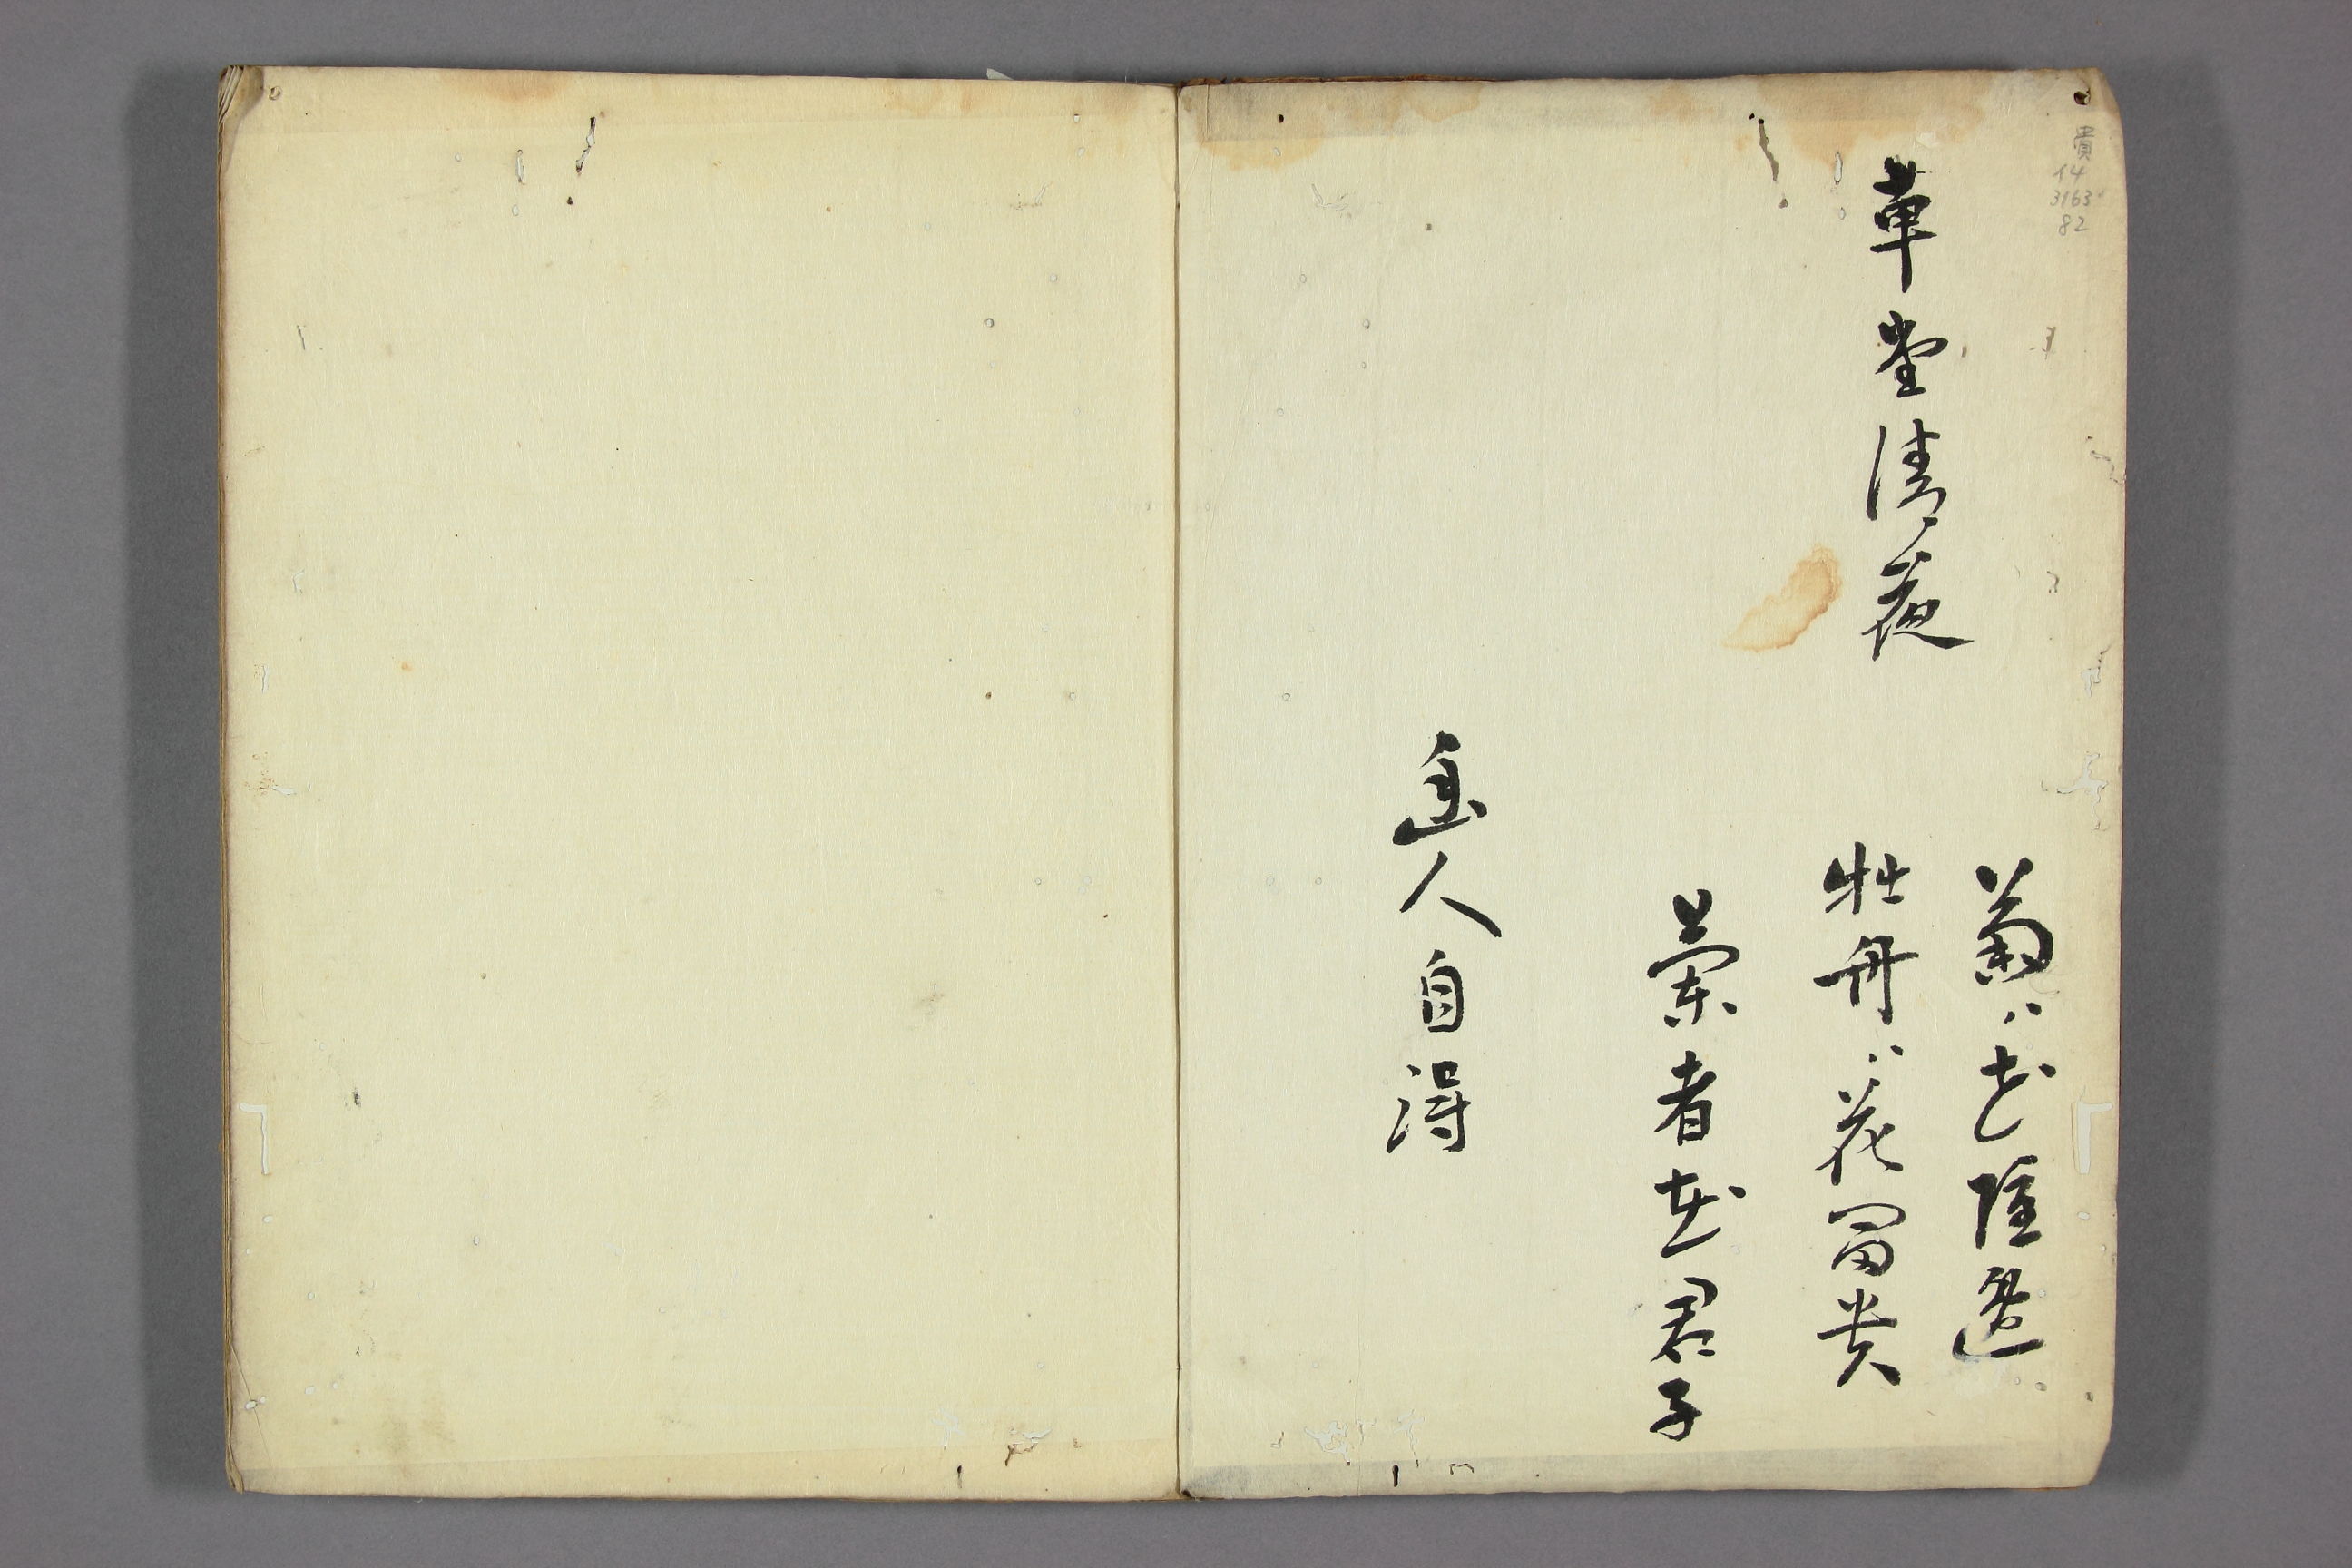 貴
イ4
3163
82
草堂清夜
菊ハ花隠逸
牡丹ハ花富貴
蘭者花君子
幽人自得